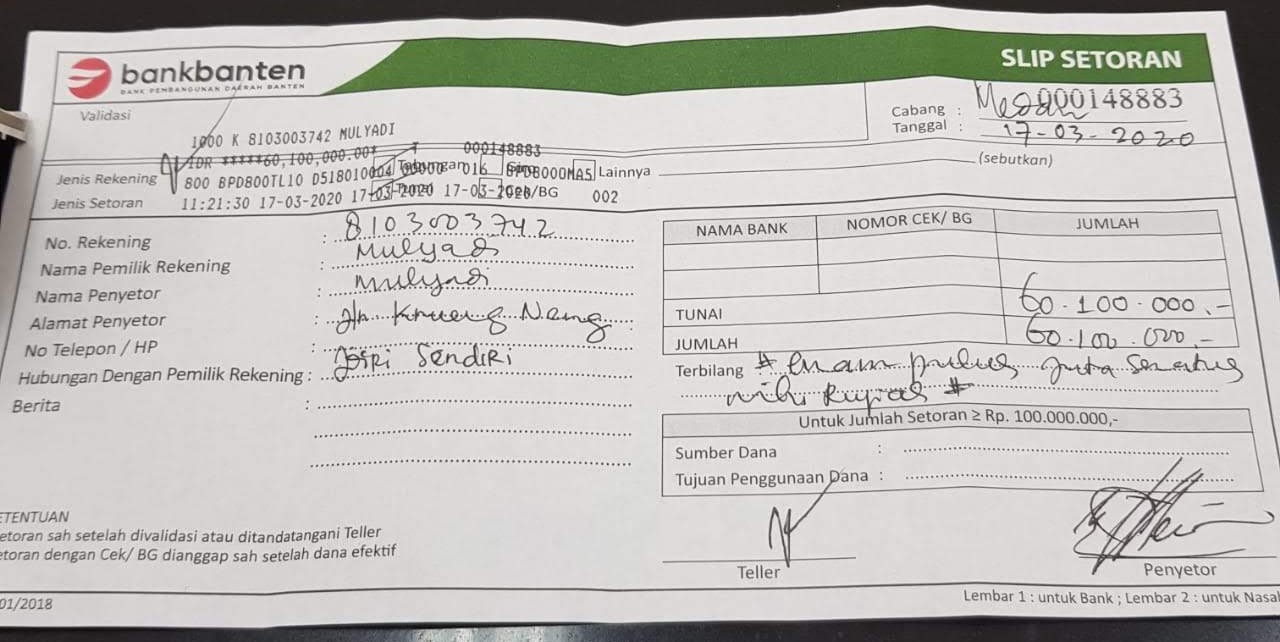 bankbanten
BANK PEMBANGUNAN DAERAH BANTEN
SLIP SETORAN
Validasi
Cabang : Medan 000148883
Tanggal : 17-03-2020
1000 K 8103003742 MULYADI
IDR *****60,100,000.00* 000148883
Jenis Rekening Tabungan Giro Lainnya (sebutkan)
800 BPD800TL10 D518010004 00000 016 BPD8000MAS
Jenis Setoran Tunai Cek/BG
11:21:30 17-03-2020 17-03-2020 17-03-2020 002
No. Rekening : 8103003742
Nama Pemilik Rekening : Mulyadi
Nama Penyetor : Mulyadi
Alamat Penyetor : Jln Krueng
No Telepon / HP :
Hubungan Dengan Pemilik Rekening : Diri Sendiri
Berita :
NAMA BANK NOMOR CEK/ BG JUMLAH
TUNAI 60.100.000.-
JUMLAH 60.100.000.-
Terbilang # enam puluh juta seratus
ribu Rupiah #
Untuk Jumlah Setoran ≥ Rp. 100.000.000,-
Sumber Dana :
Tujuan Penggunaan Dana :
Teller
Penyetor
ETENTUAN
etoran sah setelah divalidasi atau ditandatangani Teller
etoran dengan Cek/ BG dianggap sah setelah dana efektif
01/2018
Lembar 1 : untuk Bank ; Lembar 2 : untuk Nasab